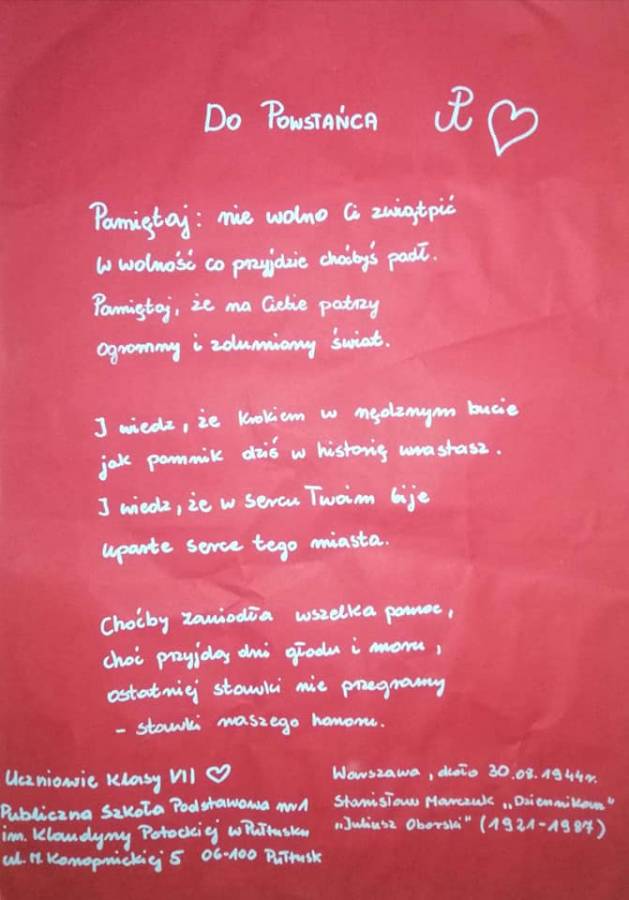 Do Powstańca
Pamiętaj: nie wolno Ci zwiątpić
w wolność co przyjdzie choćbyś padł.
Pamiętaj, że na Ciebie patrzy
ogromny i zdumiony świat.
I wiedz, że krokiem w nędznym bucie
jak pomnik dziś w historię wrastasz.
I wiedz, że w sercu Twoim bije
uparte serce tego miasta.
Choćby zawiodła wszelka pomoc,
choć przyjdą dni głodu i moru,
ostatniej stawki nie przegramy
- stawki naszego honoru.
Uczniowie Klasy VII
Publiczna Szkoła Podstawowa nr 1
im. Klaudyny Potockiej w Pułtusku
ul. M. Konopnickiej 5 06-100 Pułtusk
Warszawa, około 30.08.1944r.
Stanisław Marczuk „Dziennikarz”
„Juliusz Oborski” (1921-1987)